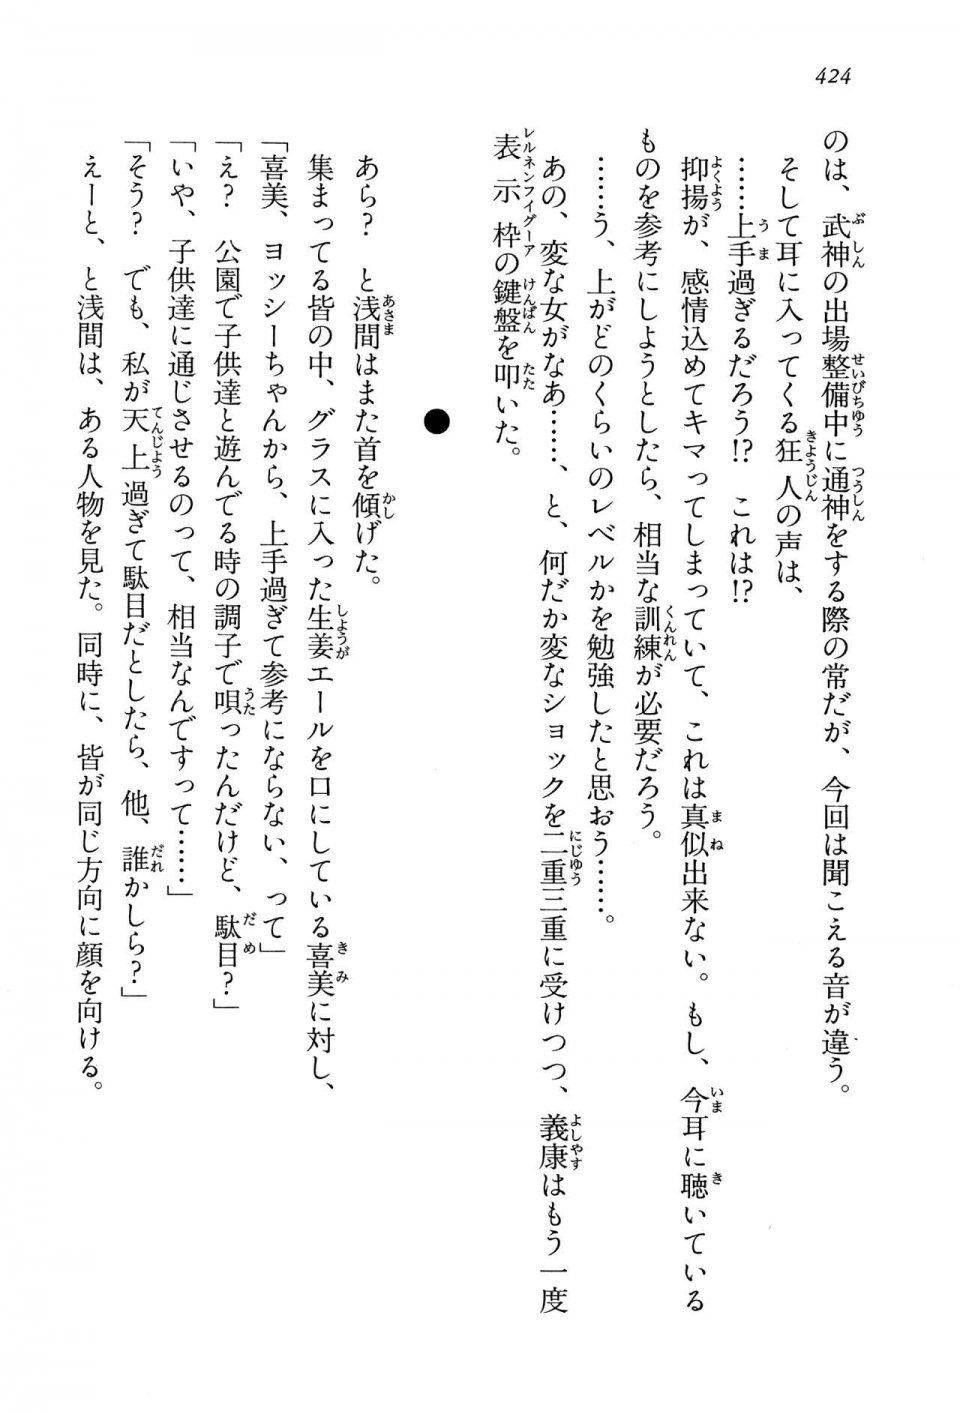 424
のは、武神の出場整備中に通神をする際の常だが、今回は聞こえる音が違う。
そして耳に入ってくる狂人の声は、
……上手過ぎるだろう!?　これは!?
抑揚が、感情込めてキマってしまっていて、これは真似出来ない。もし、今耳に聴いている
ものを参考にしようとしたら、相当な訓練が必要だろう。
……う、上がどのくらいのレベルかを勉強したと思おう……。
あの、変な女がなあ……、と、何だか変なショックを二重三重に受けつつ、義康はもう一度
表示枠の鍵盤を叩いた。
●
あら？　と浅間はまた首を傾げた。
集まってる皆の中、グラスに入った生姜エールを口にしている喜美に対し、
「喜美、ヨッシーちゃんから、上手過ぎて参考にならない、って」
「え？　公園で子供達と遊んでる時の調子で唄ったんだけど、駄目？」
「いや、子供達に通じさせるのって、相当なんですって……」
「そう？　でも、私が天上過ぎて駄目だとしたら、他、誰かしら？」
えーと、と浅間は、ある人物を見た。同時に、皆が同じ方向に顔を向ける。